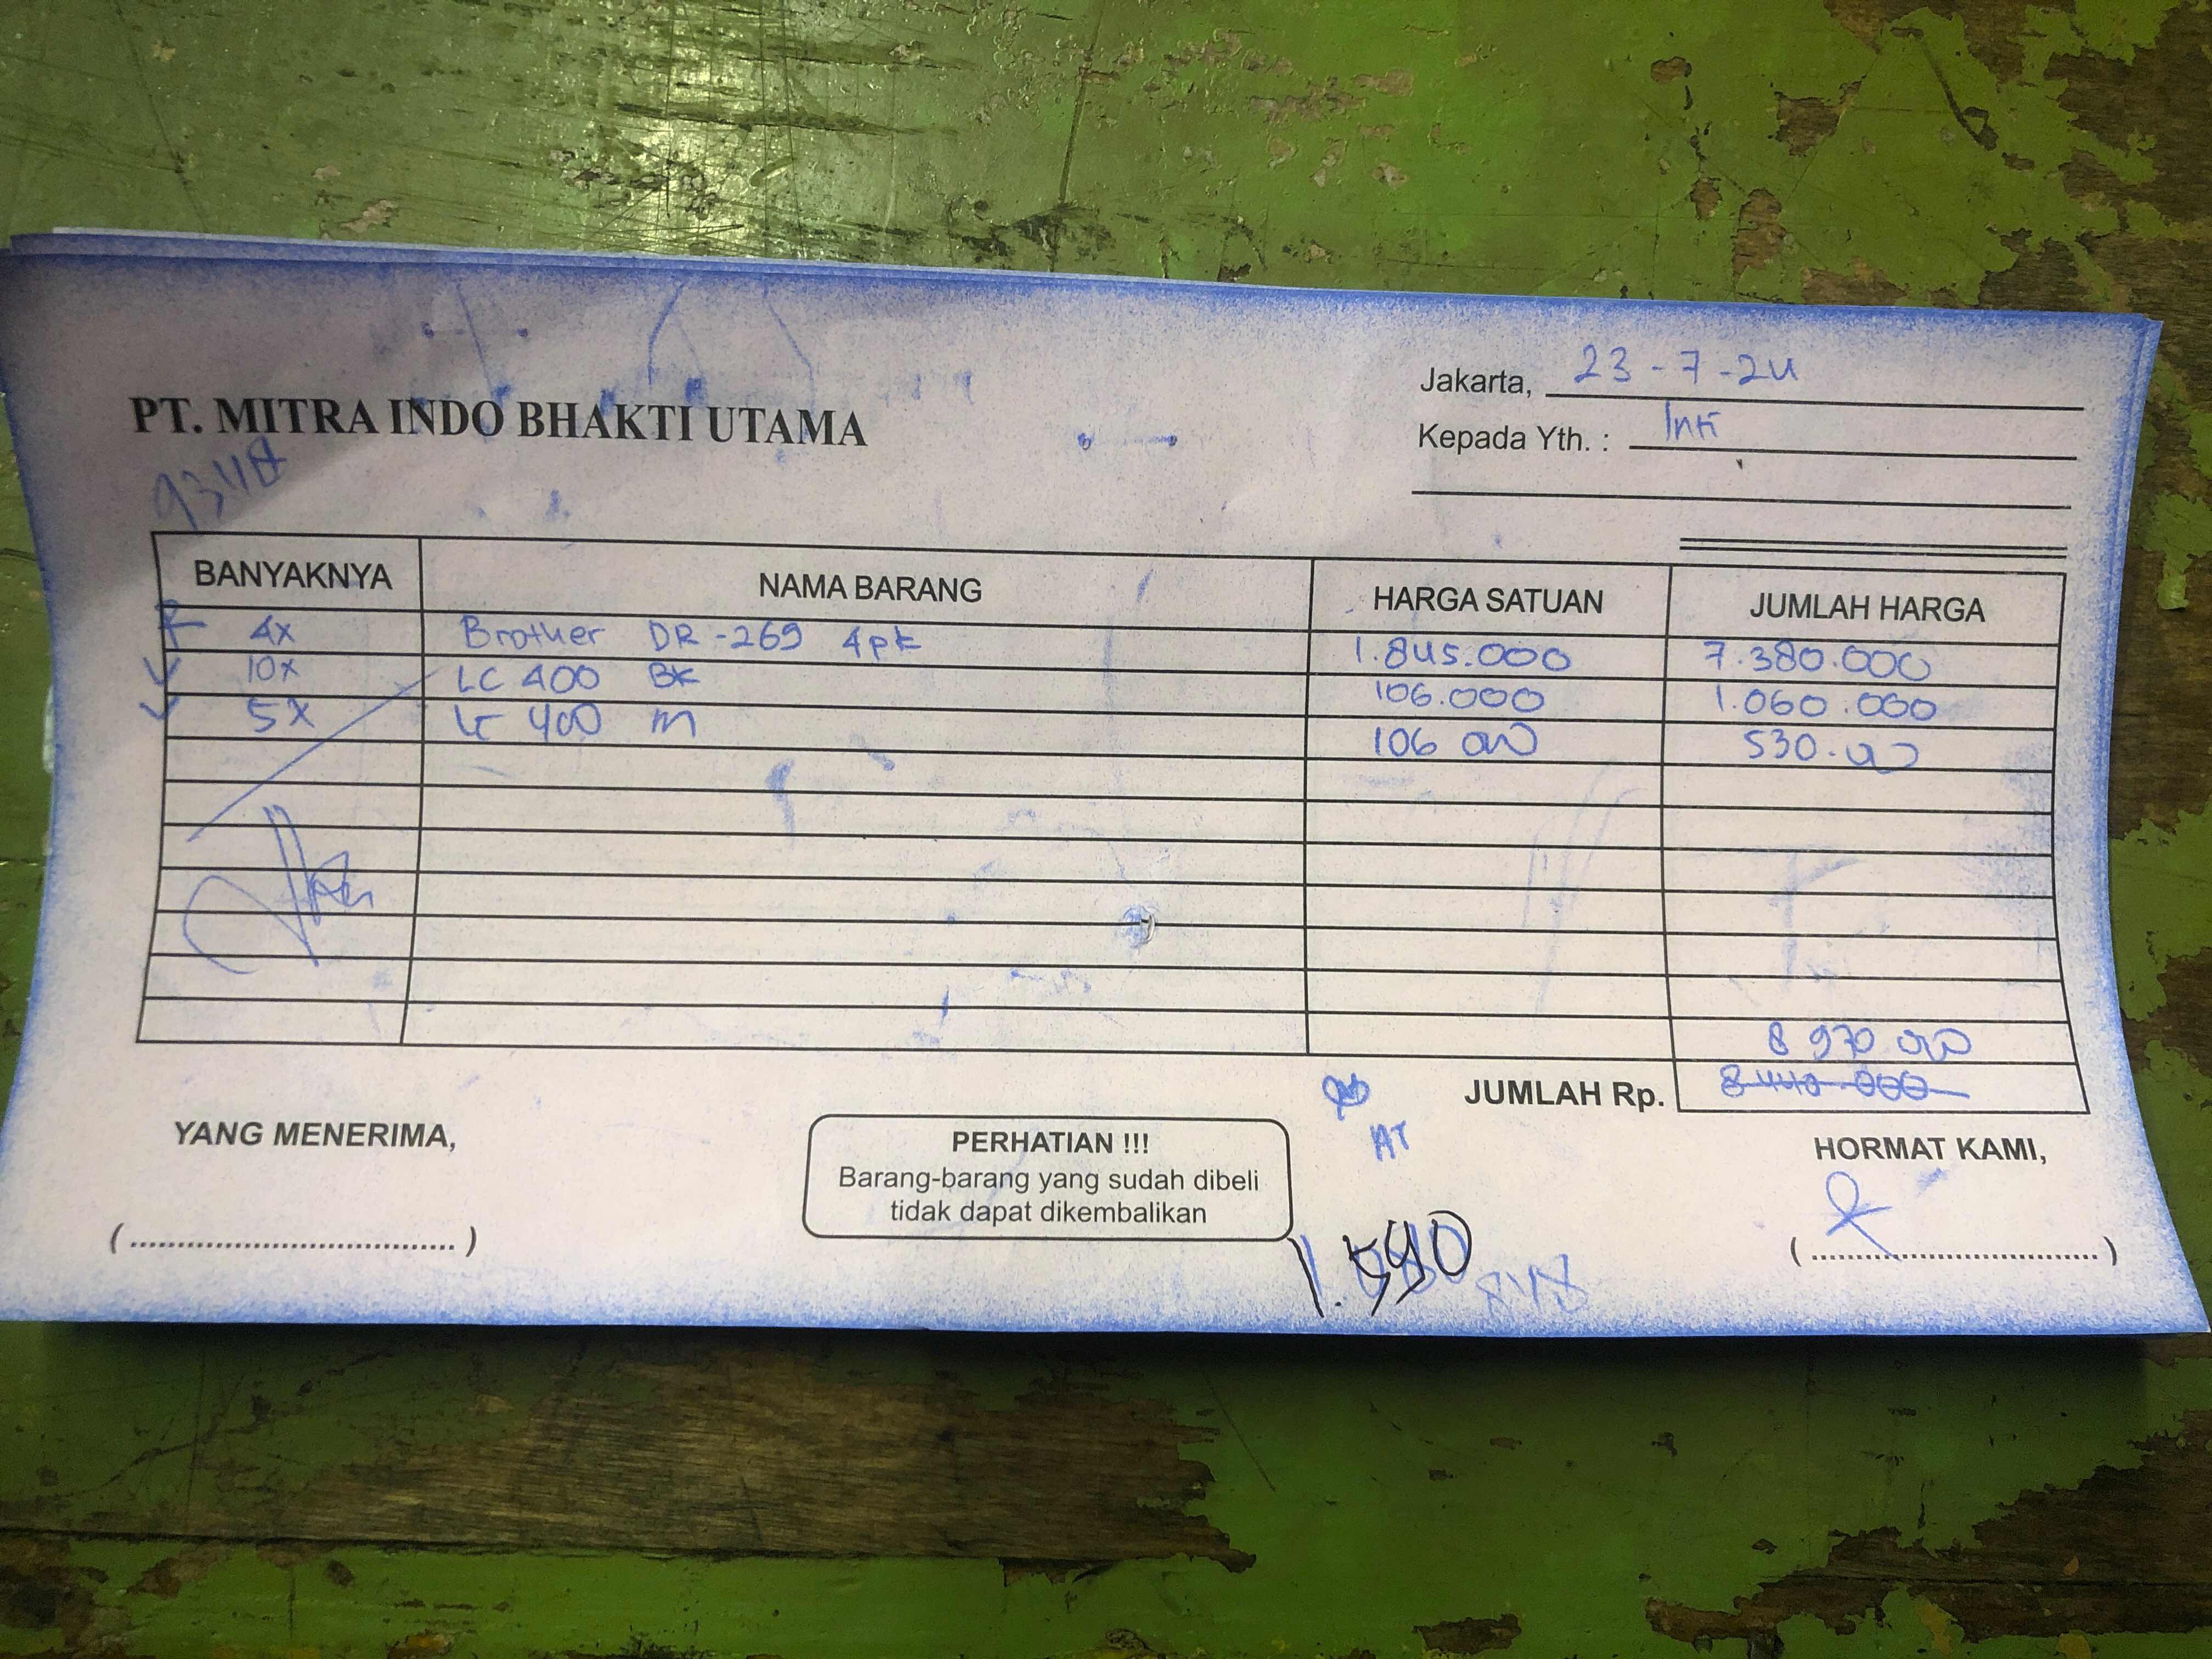 Jakarta, 23-7-24
PT. MITRA INDO BHAKTI UTAMA
Kepada Yth. : Inti
BANYAKNYA NAMA BARANG HARGA SATUAN JUMLAH HARGA
4x Brother DR-269 4pk 1.845.000 7.380.000
10x LC 400 BK 106.000 1.060.000
5x LC 400 m 106 000 530.000
8 970 000
JUMLAH Rp. 8 440.000
YANG MENERIMA,
PERHATIAN !!!
Barang-barang yang sudah dibeli
tidak dapat dikembalikan
AT
HORMAT KAMI,
(....................................)
(....................................)
1.590